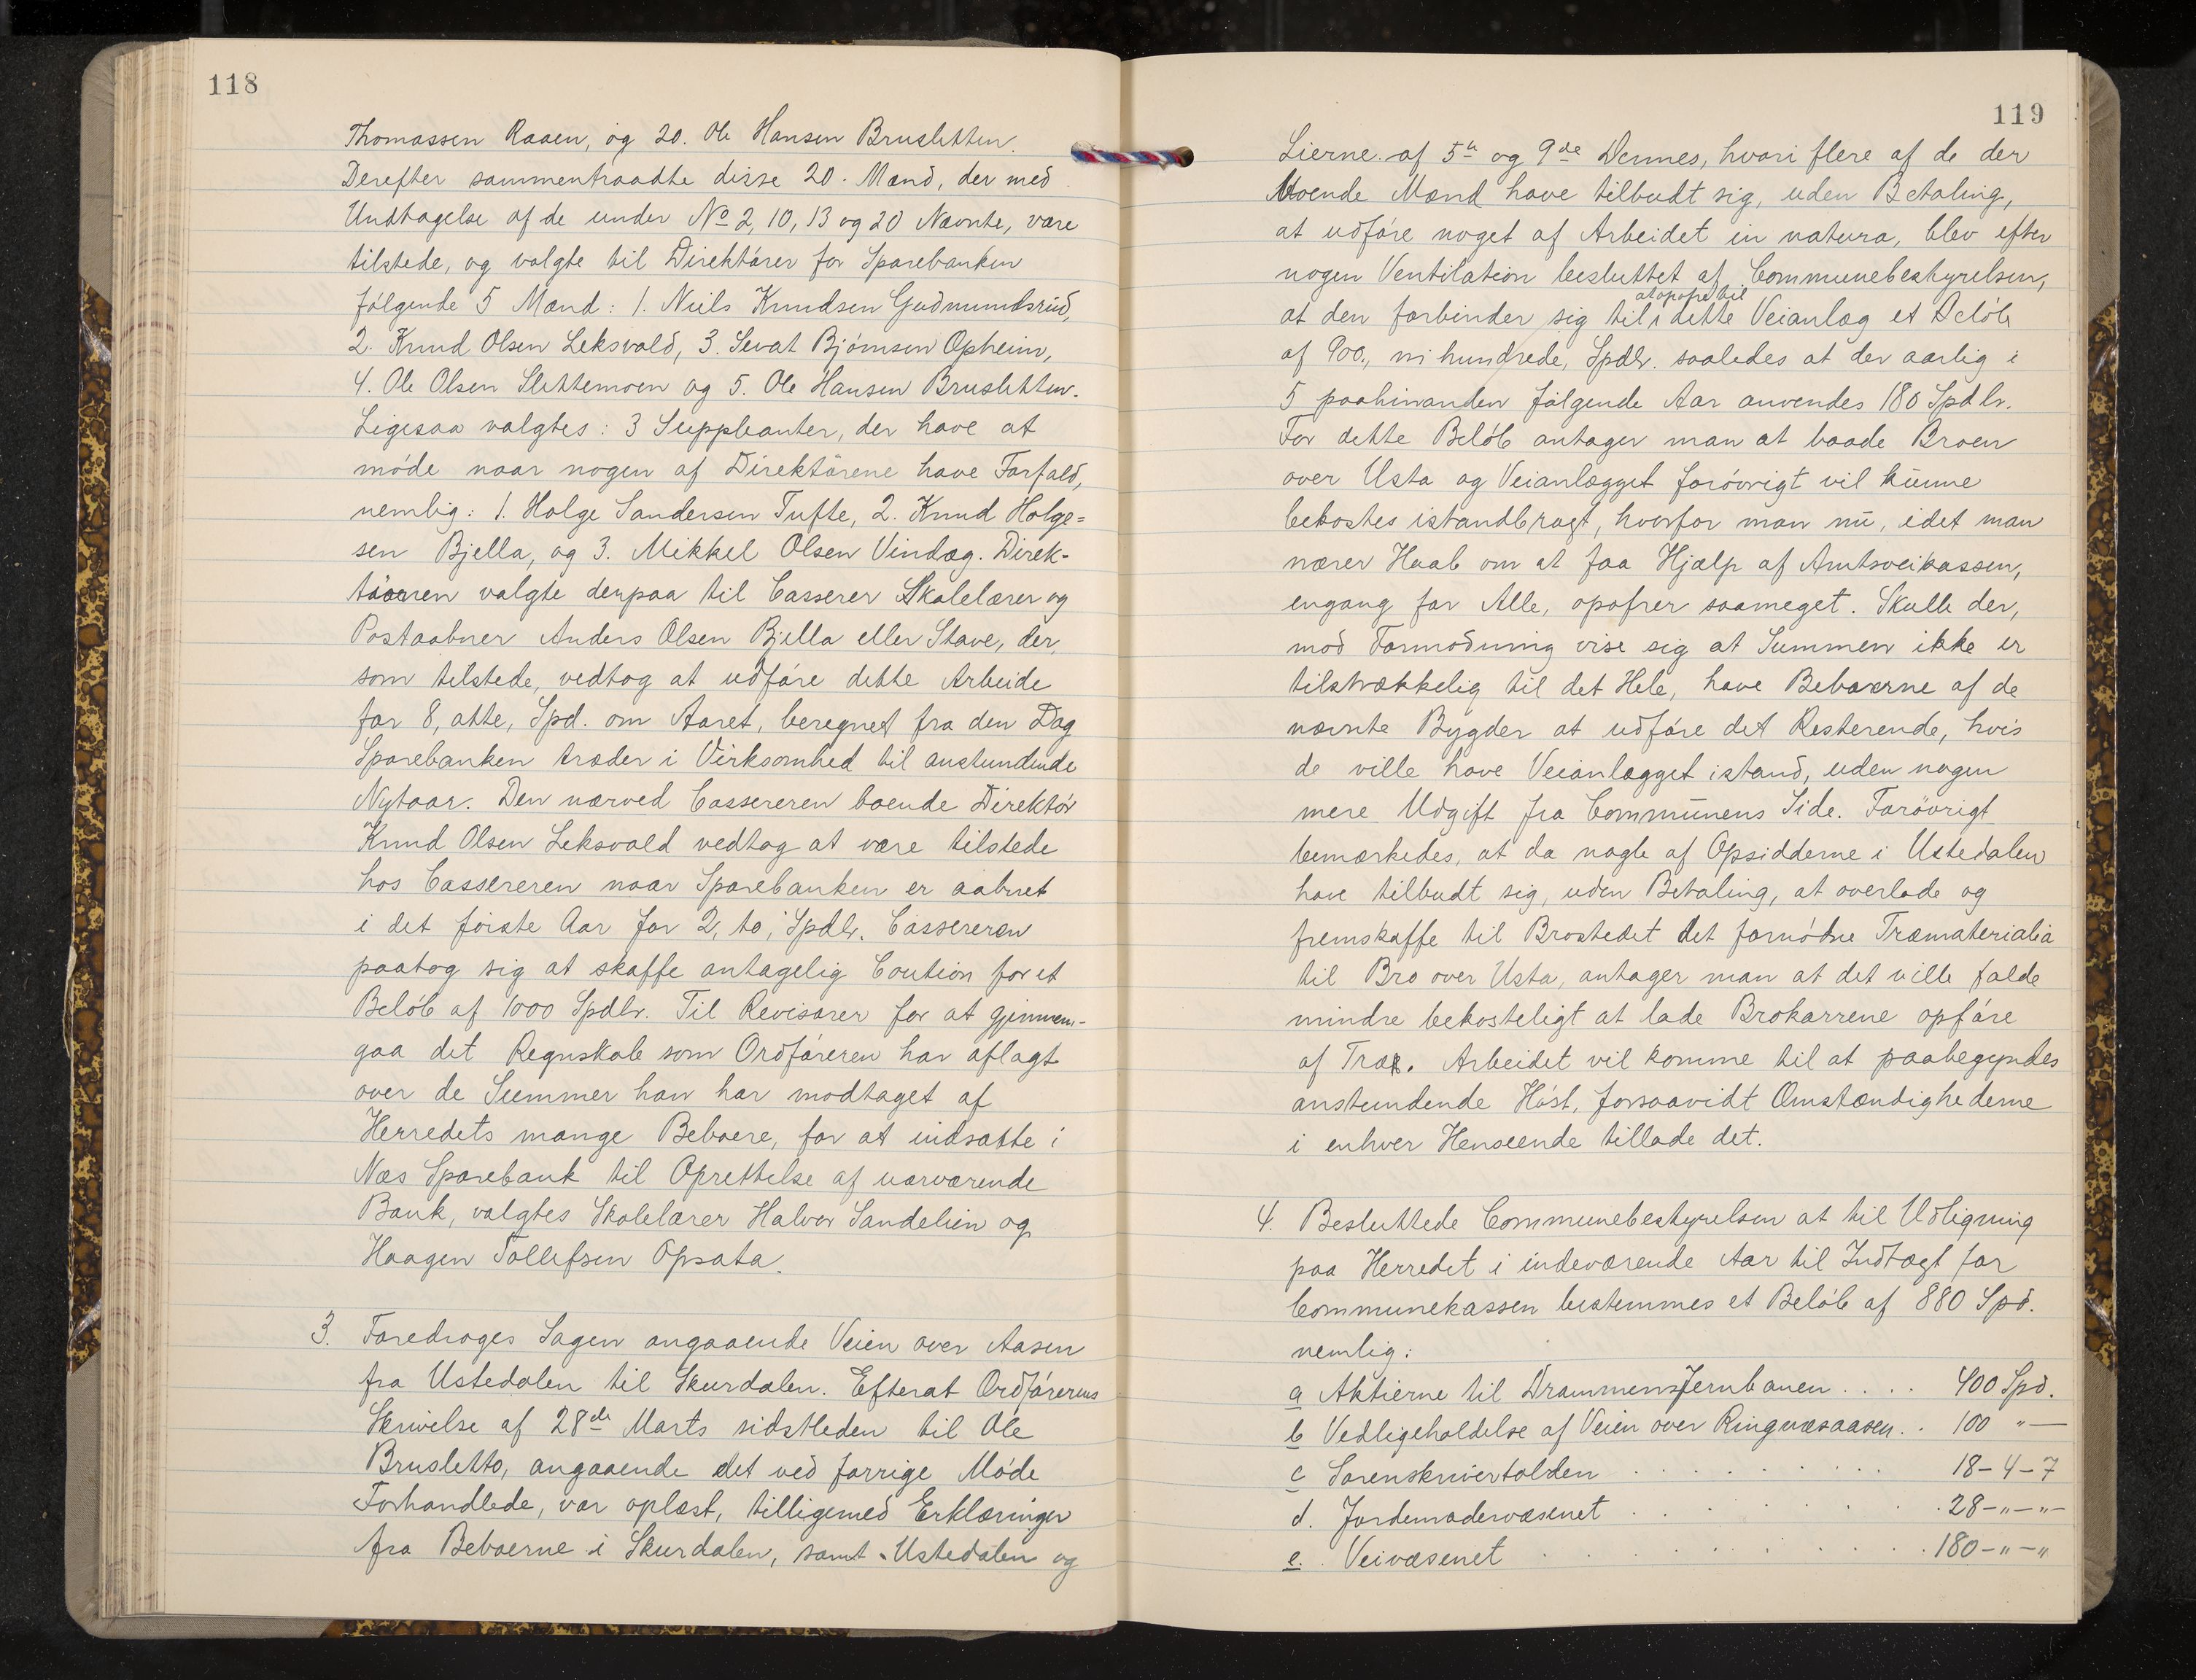 118
Thomassen Raaen, og 20. Ole Hansen Brusletten.
Derefter sammentraadte disse 20. Mænd, der med
Undtagelse af de under No 2, 10, 13 og 20 Nævnte, vare
tilstede, og valgte til Direktører for Sparebanken
følgende 5 Mænd: 1. Niels Knudsen Gudmundsrud,
2. Knud Olsen Leksvold, 3. Sevat Bjørnsen Opheim,
4. Ole Olsen Slettemoen og 5. Ole Hansen Brusletten.
Ligesaa valgtes: 3 Suppleanter, der have at
møde naar nogen af Direktørene have Forfald,
nemlig: 1. Holge Sandersen Tufte, 2. Knud Holge=
sen Bjella, og 3. Mikkel Olsen Vindæg. Direk-
tionen valgte derpaa til Casserer Skolelærer og
Postaabner Anders Olsen Bjella eller Stave, der,
som tilstede, vedtog at udføre dette Arbeide
for 8, otte, Spd. om Aaret, beregnet fra den Dag
Sparebanken træder i Virksomhed til anstundende
Nytaar. Den nærved Cassereren boende Direktör
Knud Olsen Leksvold vedtog at være tilstede
hos Cassereren naar Sparebanken er aabnet
i det første Aar for 2, to, Spdlr. Cassereren
paatog sig at skaffe antagelig Coution for et
Beløb af 1000 Spdlr. Til Revisorer for at gjennem-
gaa det Regnskab som Ordføreren har aflagt
over de Summer han har modtaget af
Herredets mange Beboere, for at indsætte i
Næs Sparebank til Oprettelse af nærværende
Bank, valgtes Skolelærer Halvor Sandelien og
Haagen Tollefsen Opsata.
3. Foredroges Sagen angaaende Veien over Aasen
fra Ustedalen til Skurdalen. Efterat Ordførerens
Skrivelse af 28de Marts sidstleden til Ole
Brusletto, angaaende det ved forrige Møde
Forhandlede, var oplæst, tilligemed Erklæringer
fra Beboerne i Skurdalen, samt Ustedalen og
119
Lierne af 5te og 9de Dennes, hvori flere af de der
boende Mænd have tilbudt sig, uden Betaling,
at udføre noget af Arbeidet in natura, blev efter
nogen Ventilation besluttet af Communebestyrelsen,
at opofre til
at den forbinder sig til i dette Veianlæg et Beløb
af 900, ni hundrede, Spdlr. saaledes at der aarlig i
5 paahinanden følgende Aar anvendes 180 Spdlr.
For dette Beløb antager man at baade Broen
over Usta og Veianlægget forøvrigt vil kunne
bekostes istandbragt, hvorfor man nu, idet man
nærer Haab om at faa Hjælp af Amtsveikassen,
engang for Alle, opofrer saameget. Skulle der,
mod Formodning vise sig at Summen ikke er
tilstrækkelig til det Hele, have Beboerne af de
nævnte Bygder at udføre det Resterende, hvis
de ville have Veianlægget istand, uden nogen
mere Udgift fra Communens Side. Forøvrigt
bemærkedes, at da nogle af Opsidderne i Ustedalen
have tilbudt sig, uden Betaling, at overlade og
fremskaffe til Brostedet det fornødne Træmaterialia
til Bro over Usta, antager man at det ville falde
mindre bekosteligt at lade Brokarrene opføre
af Træ. Arbeidet vil komme til at paabegyndes
anstundende Høst, forsaavidt Omstændighederne
i enhver Henseende tillade det.
4. Besluttede Communebestyrelsen at til Udligning
paa Herredet i indeværende Aar til Indtægt for
Communekassen bestemmes et Beløb af 880 Spd.
nemlig:
a Aktierne til DrammensJernbanen .... 400 Spd.
b Vedligeholdelse af Veien over Ringnæsaasen.. 100 "—
c Sorenskrivertolden .......... 18-4-7
d. Jordemodervæsenet ....... 28-"-"-
e. Veivæsenet .......... 180-"-"